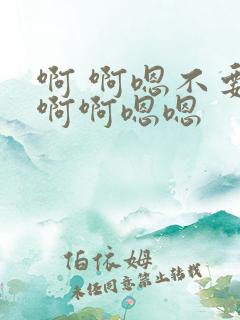 啊 啊嗯不要
啊啊嗯嗯
伯依姆
未经同意禁止转载